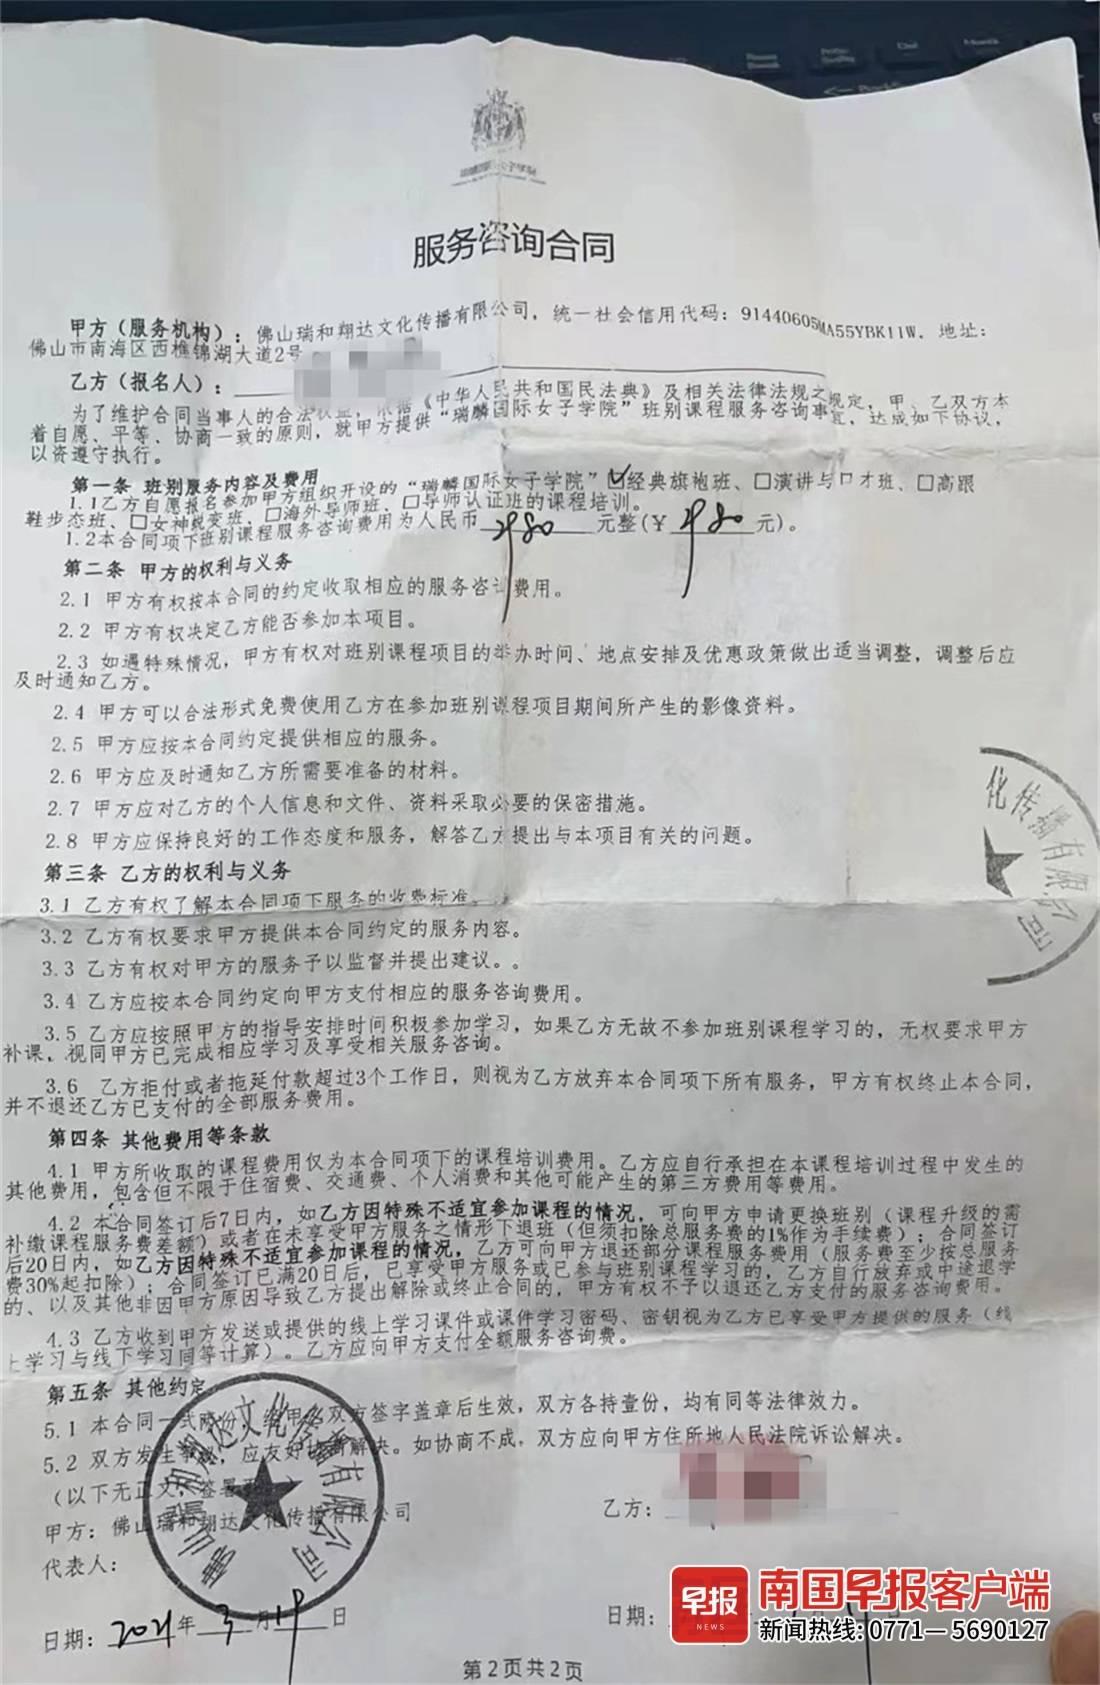 服务咨询合同
甲方（服务机构）：佛山瑞和翔达文化传播有限公司，统一社会信用代码：91440605MA55YBK11W，地址：
佛山市南海区西樵锦湖大道2号
乙方（报名人）：
为了维护合同当事人的合法权益，依据《中华人民共和国民法典》及相关法律法规之规定，甲、乙双方本
着自愿、平等、协商一致的原则，就甲方提供“瑞麟国际女子学院”班别课程服务咨询事宜，达成如下协议，
以资遵守执行。
第一条 班别服务内容及费用
1.1乙方自愿报名参加甲方组织开设的“瑞麟国际女子学院”☑经典旗袍班、□演讲与口才班、□高跟
鞋步态班、□女神蜕变班、□海外导师班、□导师认证班的课程培训。
1.2本合同项下班别课程服务咨询费用为人民币 元整(￥ 元)。
第二条 甲方的权利与义务
2.1 甲方有权按本合同的约定收取相应的服务咨询费用。
2.2 甲方有权决定乙方能否参加本项目。
2.3 如遇特殊情况，甲方有权对班别课程项目的举办时间、地点安排及优惠政策做出适当调整，调整后应
及时通知乙方。
2.4 甲方可以合法形式免费使用乙方在参加班别课程项目期间所产生的影像资料。
2.5 甲方应按本合同约定提供相应的服务。
2.6 甲方应及时通知乙方所需要准备的材料。
2.7 甲方应对乙方的个人信息和文件、资料采取必要的保密措施。
2.8 甲方应保持良好的工作态度和服务，解答乙方提出与本项目有关的问题。
化传播有限公司
第三条 乙方的权利与义务
3.1 乙方有权了解本合同项下服务的收费标准。
3.2 乙方有权要求甲方提供本合同约定的服务内容。
3.3 乙方有权对甲方的服务予以监督并提出建议。。
3.4 乙方应按本合同约定向甲方支付相应的服务咨询费用。
3.5 乙方应按照甲方的指导安排时间积极参加学习，如果乙方无故不参加班别课程学习的，无权要求甲方
补课，视同甲方已完成相应学习及享受相关服务咨询。
3.6 乙方拒付或者拖延付款超过3个工作日，则视为乙方放弃本合同项下所有服务，甲方有权终止本合同，
并不退还乙方已支付的全部服务费用。
第四条 其他费用等条款
4.1 甲方所收取的课程费用仅为本合同项下的课程培训费用。乙方应自行承担在本课程培训过程中发生的
其他费用，包含但不限于住宿费、交通费、个人消费和其他可能产生的第三方费用等费用。
4.2 本合同签订后7日内，如乙方因特殊不适宜参加课程的情况，可向甲方申请更换班别（课程升级的需
补缴课程服务费差额）或者在未享受甲方服务之情形下退班（但须扣除总服务费的1%作为手续费）；合同签订
后20日内，如乙方因特殊不适宜参加课程的情况，乙方可向甲方退还部分课程服务费用（服务费至少按总服务
费30%起扣除）；合同签订已满20日后，已享受甲方服务或已参与班别课程学习的，乙方自行放弃或中途退学
的、以及其他非因甲方原因导致乙方提出解除或终止合同的，甲方有权不予以退还乙方支付的服务咨询费用。
4.3 乙方收到甲方发送或提供的线上学习课件或课件学习密码、密钥视为乙方已享受甲方提供的服务（线
上学习与线下学习同等计算）。乙方应向甲方支付全额服务咨询费。
第五条 其他约定
5.1 本合同一式两份，经甲乙双方签字盖章后生效，双方各持壹份，均有同等法律效力。
5.2 双方发生争议，应友好协商解决。如协商不成，双方应向甲方住所地人民法院诉讼解决。
（以下无正文，签署页）
甲方：佛山瑞和翔达文化传播有限公司
乙方：
代表人：
佛山瑞和翔达文化传播有限公司
日期：2021年3月19日
日期：
第2页共2页
早报
NEWS
南国早报客户端
新闻热线：0771—5690127